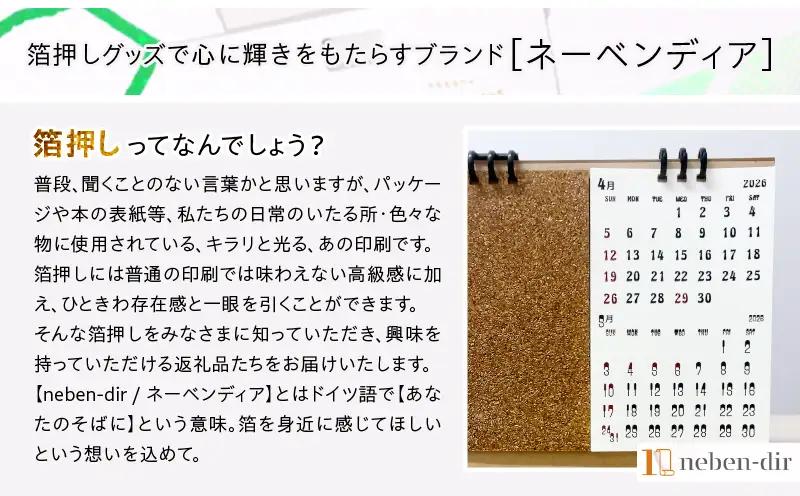 箔押しグッズで心に輝きをもたらすブランド[ネーベンディア]
箔押しってなんでしょう?
普段、聞くことのない言葉かと思いますが、パッケー
ジや本の表紙等、私たちの日常のいたる所・色々な
物に使用されている、キラリと光る、あの印刷です。
箔押しには普通の印刷では味わえない高級感に加
え、ひときわ存在感と一眼を引くことができます。
そんな箔押しをみなさまに知っていただき、興味を
持っていただける返礼品たちをお届けいたします。
【neben-dir / ネーベンディア】とはドイツ語で【あな
たのそばに】という意味。箔を身近に感じてほしい
という想いを込めて。
4月 2026
SUN MON TUE WED THU FRI SAT
1 2 3 4
5 6 7 8 9 10 11
12 13 14 15 16 17 18
19 20 21 22 23 24 25
26 27 28 29 30
5月 2026
SUN MON TUE WED THU FRI SAT
1 2
3 4 5 6 7 8 9
10 11 12 13 14 15 16
17 18 19 20 21 22 23
24 31 25 26 27 28 29 30
neben-dir